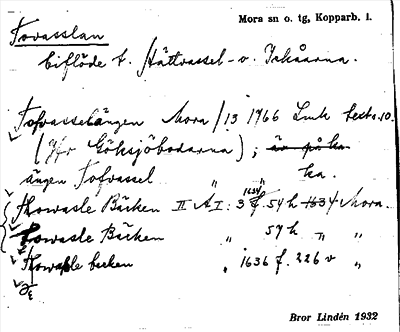 Mora sn o. tg, Kopparb. l.
Tovasslan
biflöde t. Hättvassel- o. Irkåarna.
Tofvasselängen Mora /13 1766 Link text s.10.
(Jfr Göksjöbodarna); är på ka
ängen Tofvassel " " ka.
Thowasle Bäcken II A I: 3 1634 f. 54 h 1634 Mora.
Towasle Bäcken " 57 h " "
Thowaßle becken " 1636 f. 226 v "
Bror Lindén 1932